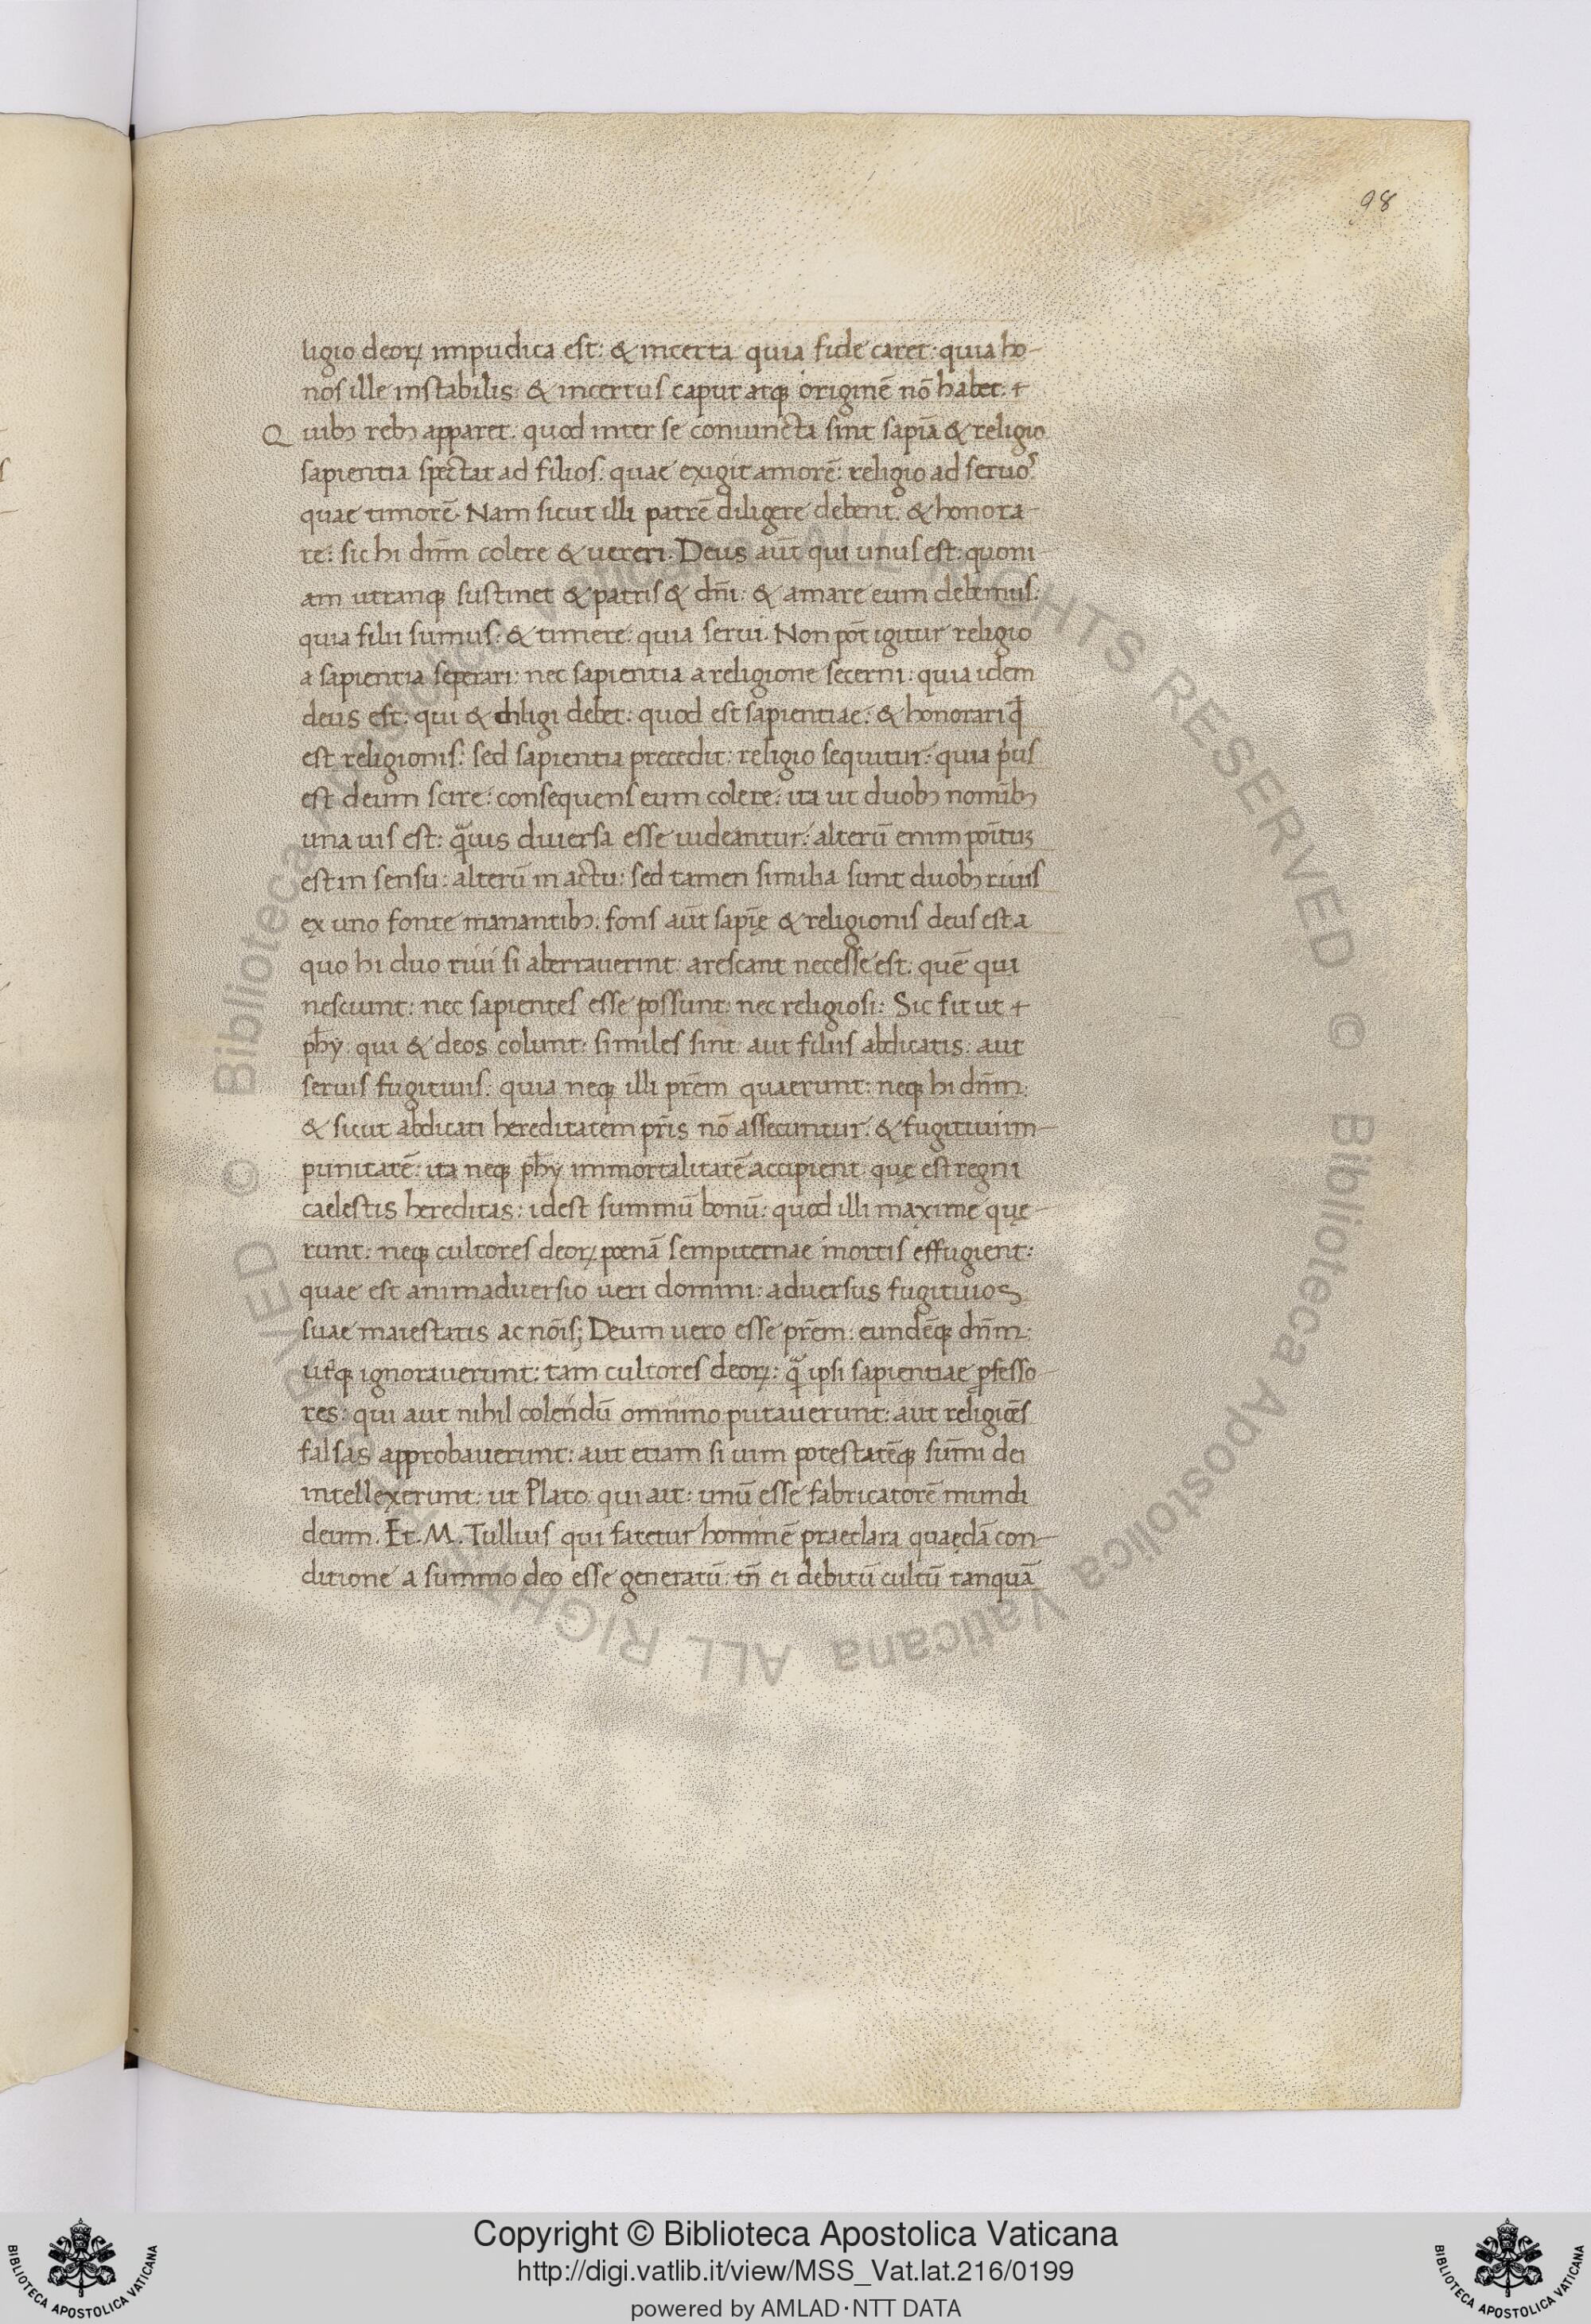 98
ligio deoꝝ impudica est: & incerta quia fide caret: quia ho-
nos ille instabilis & incertus caput atqꝫ originē nō habet. +
Q uibꝫ rebꝫ apparet. quod inter se coniuncta sint sapīa & religio
sapientia spectat ad filios: quae exigit amorē: religio ad seruos
quae timorē. Nam sicut illi patrē diligere debent. & honora-
re: sic hi dn̄m colere & uereri. Deus aūt qui unus est: quoni-
am utranqꝫ sustinet & patris & dn̄i: & amare eum debemus:
quia filii sumus: & timere: quia serui. Non pōt igitur religio
a sapientia seperari: nec sapientia a religione secerni: quia idem
deus est: qui & diligi debet: quod est sapientiae: & honorari qd̄
est religionis: sed sapientia precedit: religio sequitur: quia p̍us
est deum scire: consequens eum colere: ita ut duobꝫ nomībꝫ
una uis est: qͣuis diuersa esse uideantur: alterū enim poītuꝫ
est in sensu: alterū in actu: sed tamen similia sunt duobꝫ riuis
ex uno fonte manantibꝫ. fons aūt sapīę & religionis deus est a
quo hi duo riui si aberrauerint: arescant necesse est: quē qui
nesciunt: nec sapientes esse possunt: nec religiosi: Sic fit ut +
pħy: qui & deos colunt: similes sint: aut filiis abdicatis: aut
seruis fugitiuis: quia neqꝫ illi pr̄em quaerunt: neqꝫ hi dn̄m:
& sicut abdicati hereditatem pr̄is nō assecuntur: & fugitiui im-
punitatē: ita neqꝫ pħy immortalitatē accipient quę est regni
caelestis hereditas: idest summū bonū: quod illi maxime quę-
runt: neqꝫ cultores deoꝝ poenā sempiternae mortis effugient:
quae est animaduersio ueri domini: aduersus fugitiuos
suae maiestatis ac nōis; Deum uero esse pr̄em: eundēqꝫ dn̄m:
utͥqꝫ ignorauerunt: tam cultores deoꝝ: qͣ ipsi sapientiae ꝓfesso-
res: qui aut nihil colendū omnino putauerunt: aut religiōes
falsas approbauerunt: aut etiam si uim potestatēqꝫ sum̄i dei
intellexerunt: ut Plato qui ait: unū esse fabricatorē mundi
deum. Et. M. Tullius qui fatetur hominē praeclara quaędā con-
ditione a summo deo esse generatū: tn̄ ei debitū cultū tanquā
Copyright © Biblioteca Apostolica Vaticana
http://digi.vatlib.it/view/MSS_Vat.lat.216/0199
powered by AMLAD·NTT DATA
BIBLIOTECA APOSTOLICA VATICANA
BIBLIOTECA APOSTOLICA VATICANA
© Biblioteca Apostolica Vaticana ALL RIGHTS RESERVED © Biblioteca Apostolica Vaticana ALL RIGHTS RESERVED